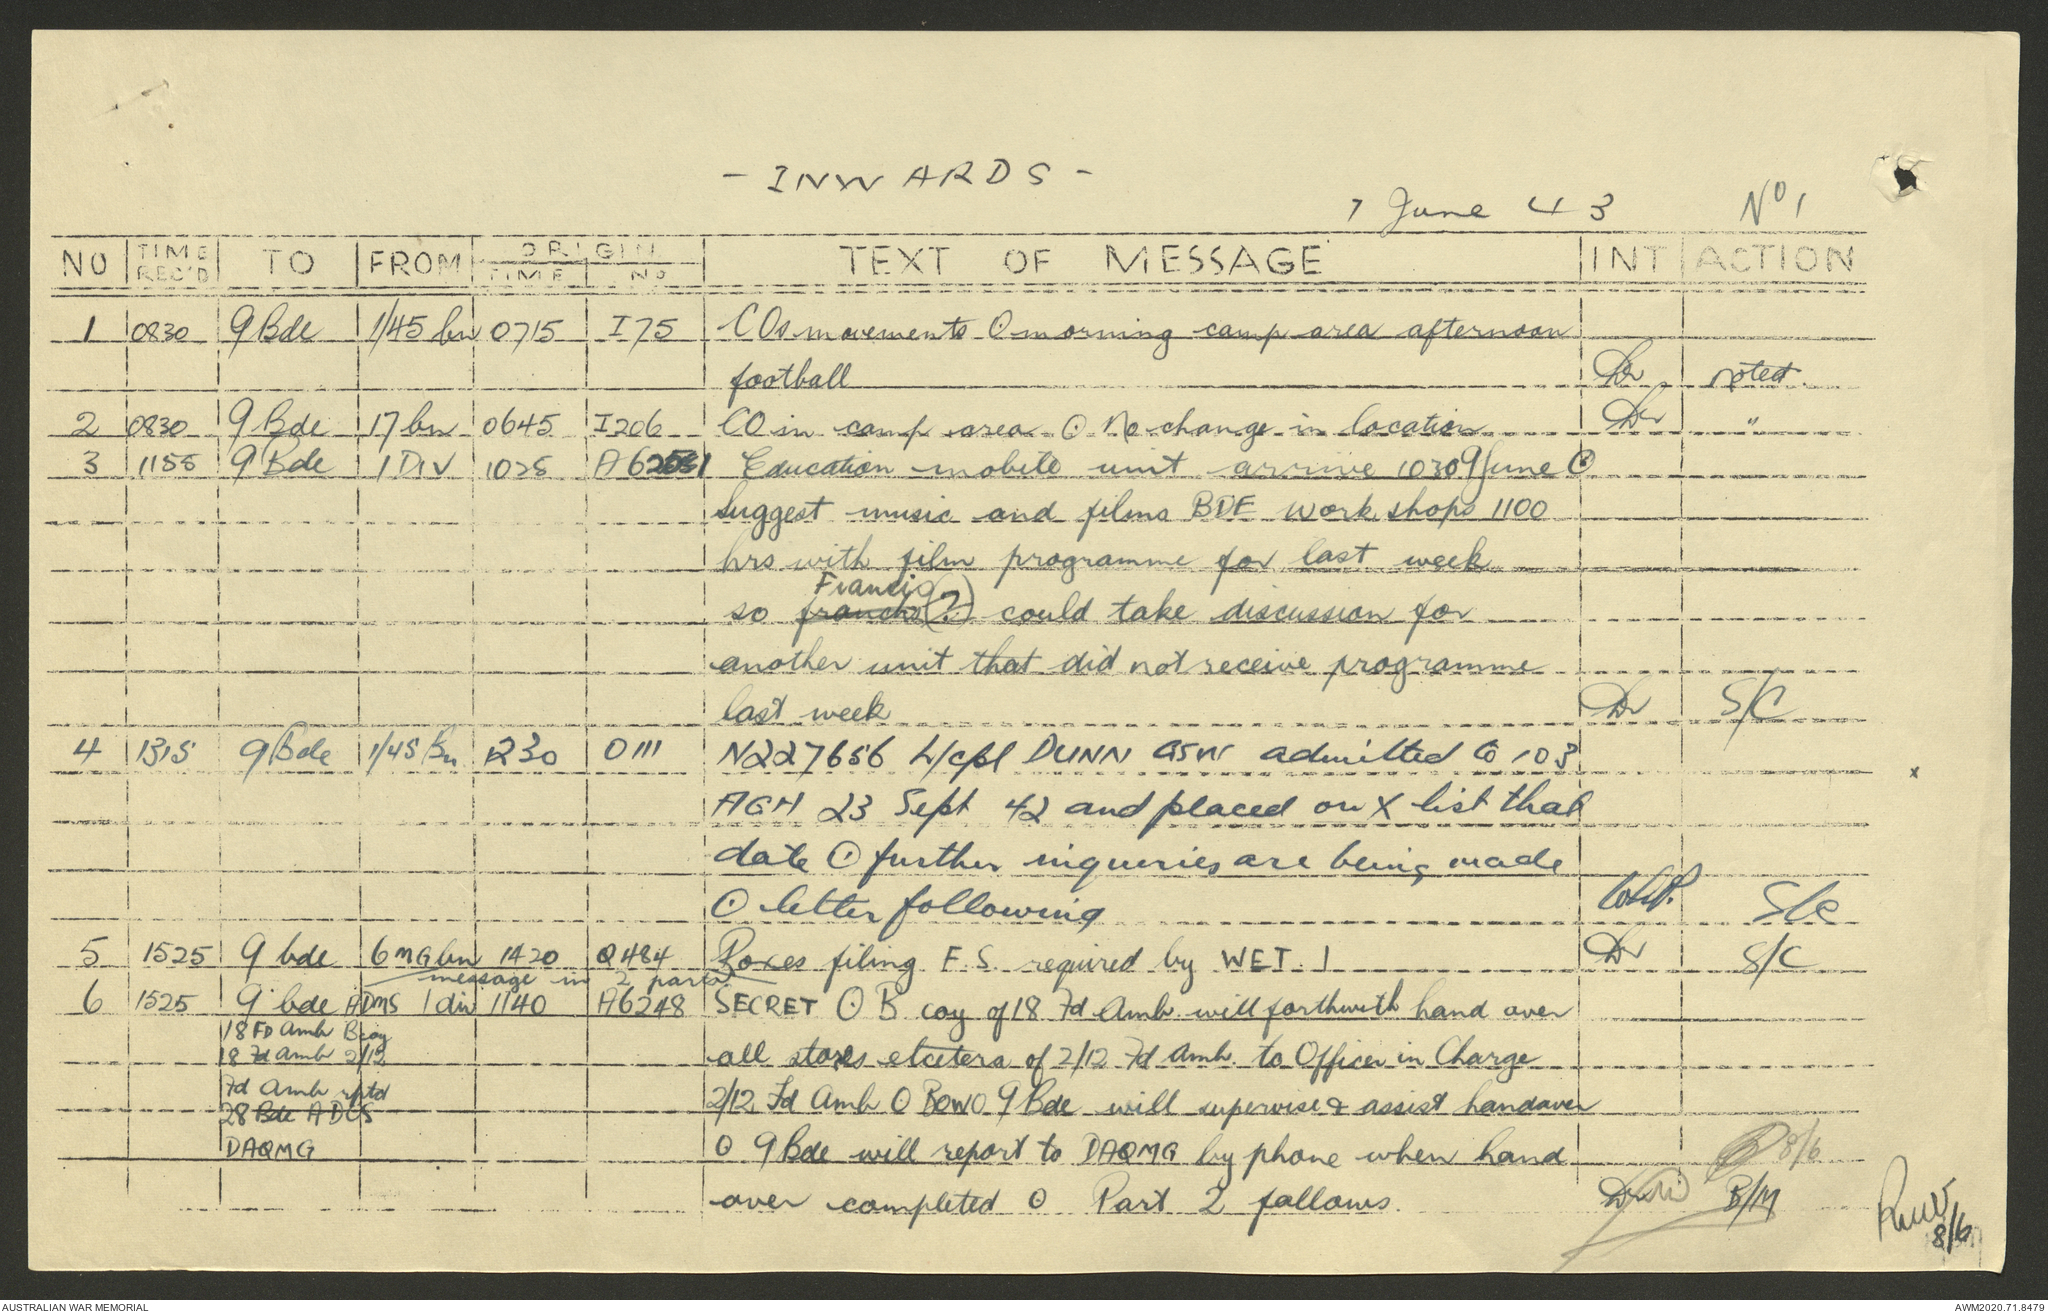 - INWARDS -
7 June 43 No 1
NO TIME REC'D TO FROM ORIGIN TIME No TEXT OF MESSAGE INT ACTION
1 0830 9 Bde 1/45 bn 0715 I75 COs movements ⊙ morning camp area afternoon
football Dr noted.
2 0830 9 Bde 17 bn 0645 I206 CO in camp area ⊙ No change in location Dr "
3 1155 9 Bde 1 DIV 1025 Education mobile unit arrive 1030 9 June ⊙
suggest music and films BDE work shops 1100
hrs with film programme for last week
Francis
so (?) could take discussion for
another unit that did not receive programme
last week Dr S/C
4 1315 9 Bde 1/45 Bn 1230 O111 N227656 L/cpl DUNN GSW admitted to 103
AGH 23 Sept 42 and placed on X list that
date ⊙ further inqueries are being made
⊙ letter following S/C
5 1525 9 bde 6 MG bn 1420 Q484 Boxes filing F.S. required by WET. 1 Dr S/C
message in 2 parts
6 1525 9 bde ADMS 1 div 1140 A6248 SECRET ⊙ B coy of 18 Fd Amb. will forthwith hand over
18 FD Amb B coy
18 Fd Amb 2/12 all stores etcetera of 2/12 Fd Amb. to Officer in Charge
Fd Amb rptd
28 Bde ADOS 2/12 Fd Amb ⊙ BOWO 9 Bde will supervise & assist handover
DAQMG ⊙ 9 Bde will report to DAQMG by phone when hand 8/6
over completed ⊙ Part 2 follows. Dr B/M
8/6
AUSTRALIAN WAR MEMORIAL AWM2020.71.8479